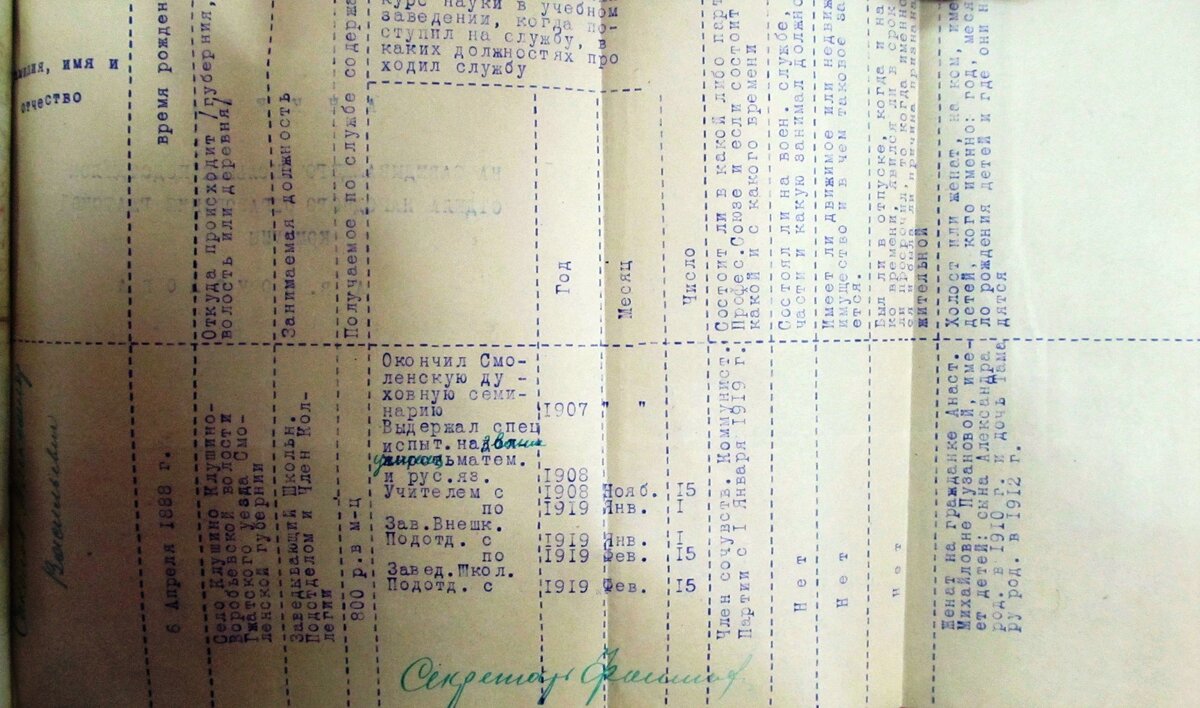 Фамилия, имя и
отчество
время рожден
Откуда происходит /губерния,
волость или деревня/
Занимаемая должность
Получаемое по службе содержа
курс науки в учебном
заведении, когда по-
ступил на службу, в
каких должностях про
ходил службу
Год
Месяц
Число
Состоит ли в какой либо парт
Профес.Союзе и если состоит
какой и с какого времени
Состоял ли на воен. службе,
части и какую занимал должно
Имеет ли движимое или недвиж
имущество и в чем таковое за
ется.
Был ли в отпуске, когда и на
ко времени, явился ли в срок
ли просрочил, то когда именно
ся и была ли причина признана
жительной
Холост или женат, на ком, име
детей, кого именно: год, меся
ло рождения детей и где они н
дятся
Васильевич
6 Апреля 1888 г.
Село Клушино Клушино-
Воробьевской волости
Гжатского уезда Смо-
ленской губернии
Заведывающий Школьн.
Подотделом и Член Кол-
легии
800 р. в м-ц
Окончил Смо-
ленскую ду -
ховную семи-
нарию 1907 " "
Выдержал спец
испыт. на звание
учителя матем.
и рус.яз. 1908
Учителем с 1908 Нояб. 15
по 1919 Янв. I
Зав.Внешк.
Подотд. с 1919 Янв. I
по 1919 Фев. 15
Завед.Школ.
Подотд. с 1919 Фев. 15
Член сочувств. Коммунист.
Партии с I Января 1919 г.
Нет
Нет
Нет
Женат на гражданке Анаст.
Михайловне Пузановой, име-
ет детей: сына Александра
род. в 1910 г. и дочь Тама
ру род. в 1912 г.
Секретарь